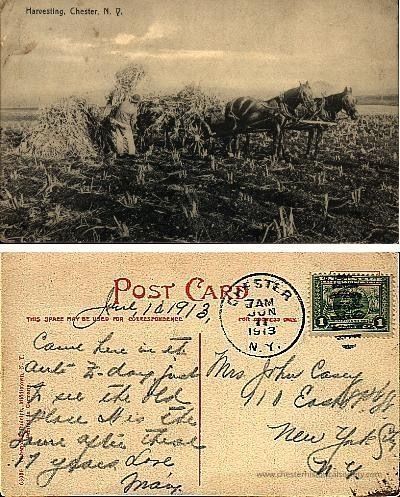 Harvesting, Chester, N. Y.
POST CARD
THIS SPACE MAY BE USED FOR CORRESPONDENCE.
FOR ADDRESS ONLY.
CHESTER
7AM
JUN
11
1913
N.Y.
1
1
June 10 1913,
Came here in the
Auto to-day just
to see the old
place It is the
same after these
17 years Love
May
Mrs John Casey
911 East
New York City
N.Y.
www.chesterhistoricalsociety.com